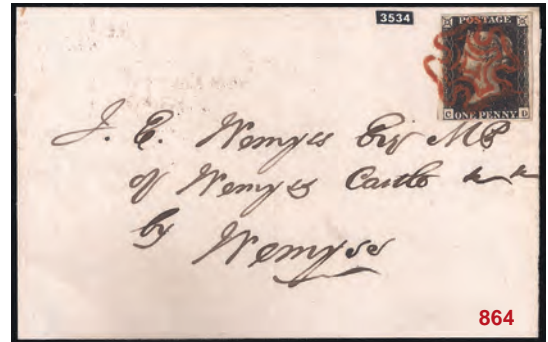 3534
POSTAGE
C D
ONE PENNY
J. E. Wemyss Esqr MP
of Wemyss Castle
by Wemyss
864